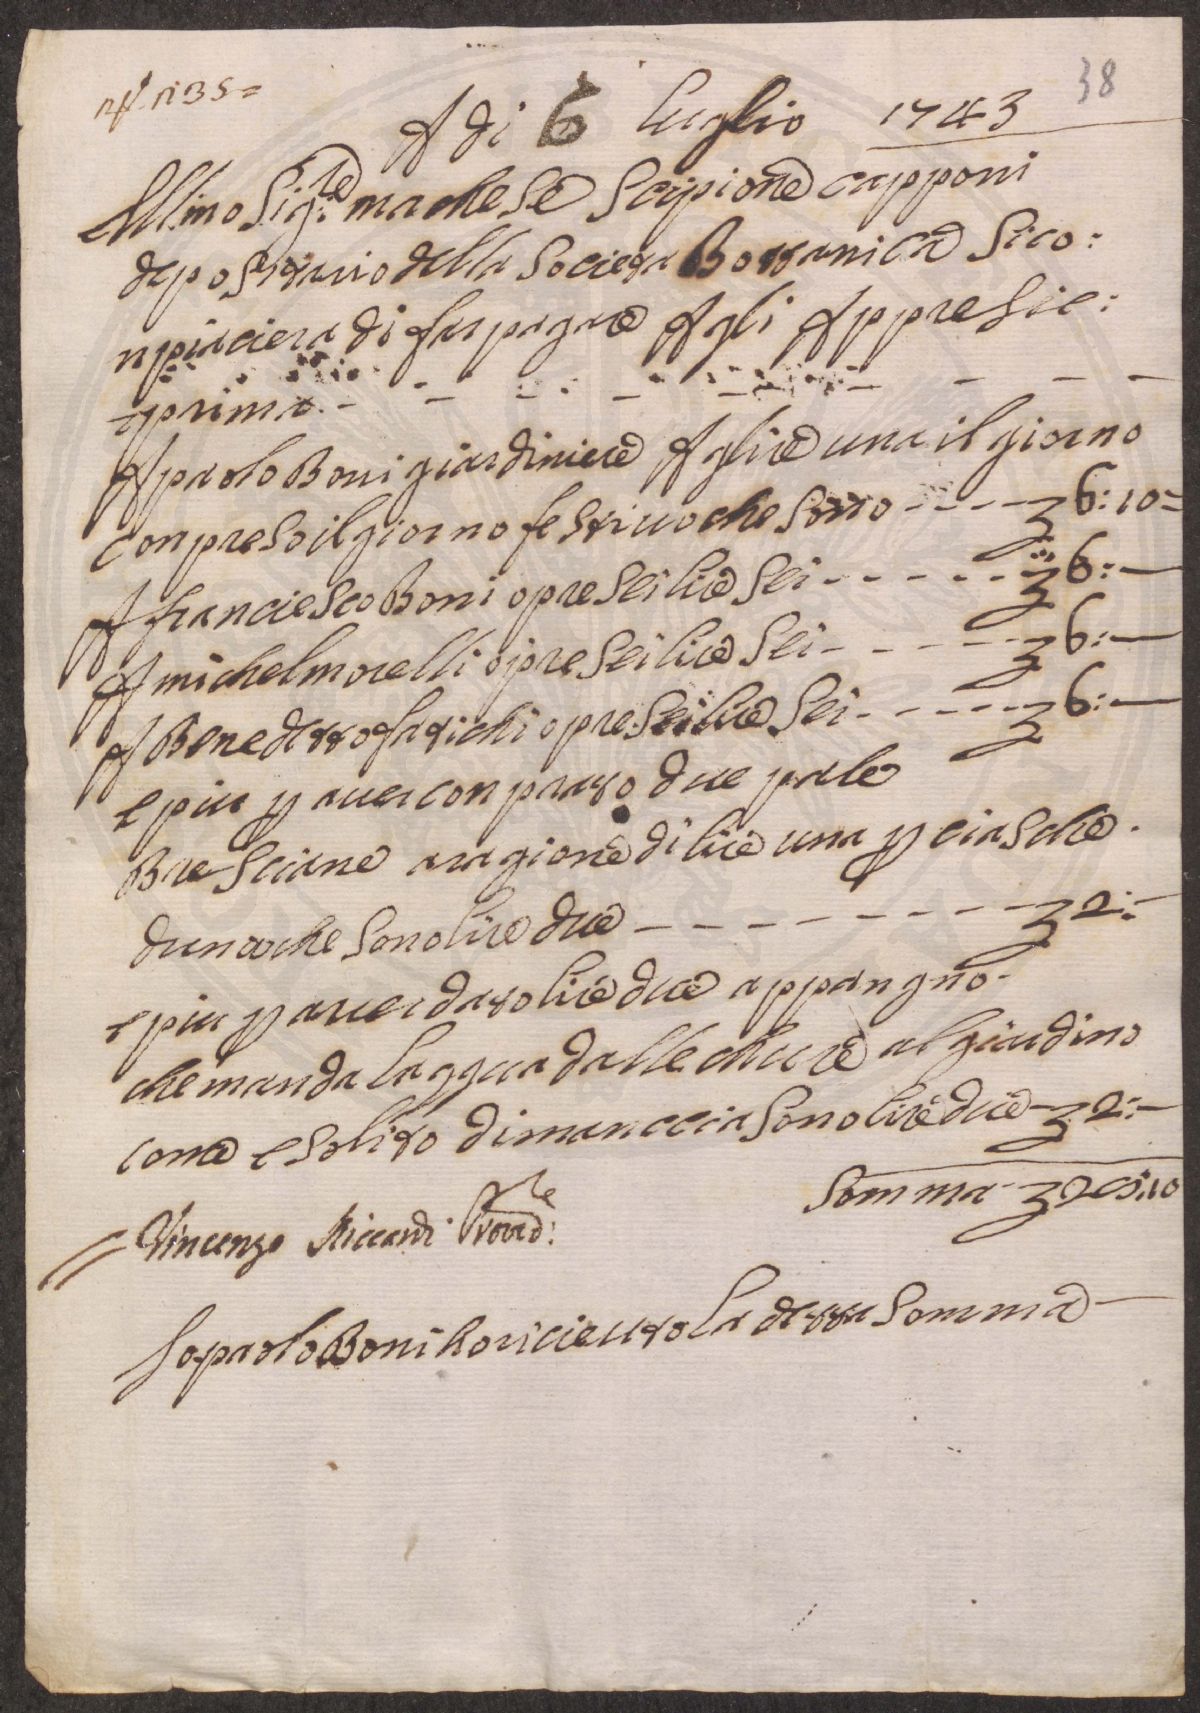 38
A di 6 Luglio 1743
Ill.mo Sig.re machese Scipione capponi
depositario della Societa Bottanica Si co:
npiaciera di far pagare A gli Appresie:
prima - - - - - - - - -
A paolo Boni giardiniere A glire una il giorno
conpreso il giorno festiuo che sotto - - - - 6:10=
A franciesco Boni opre sei lire sei - - - - - - 6:—
A michel morelli opre sei lire sei - - - - - 6:—
A Benedetto fatichi opre sei lire sei - - - - - 6:—
e piu p auer conprato due pale
Bresciane a ragione di lire una p ciasche.
duno che sono lire due - - - - - - - - - 2:—
e piu p auer dato lire due a ppangno-
che manda lagqua dalle chiare al giardino
come e solito di manccia sono lire due 2:—
Somma 28:10
Vincenzo Riccardi Proved:re
Io paolo Boni ho riceuto la detta somma —